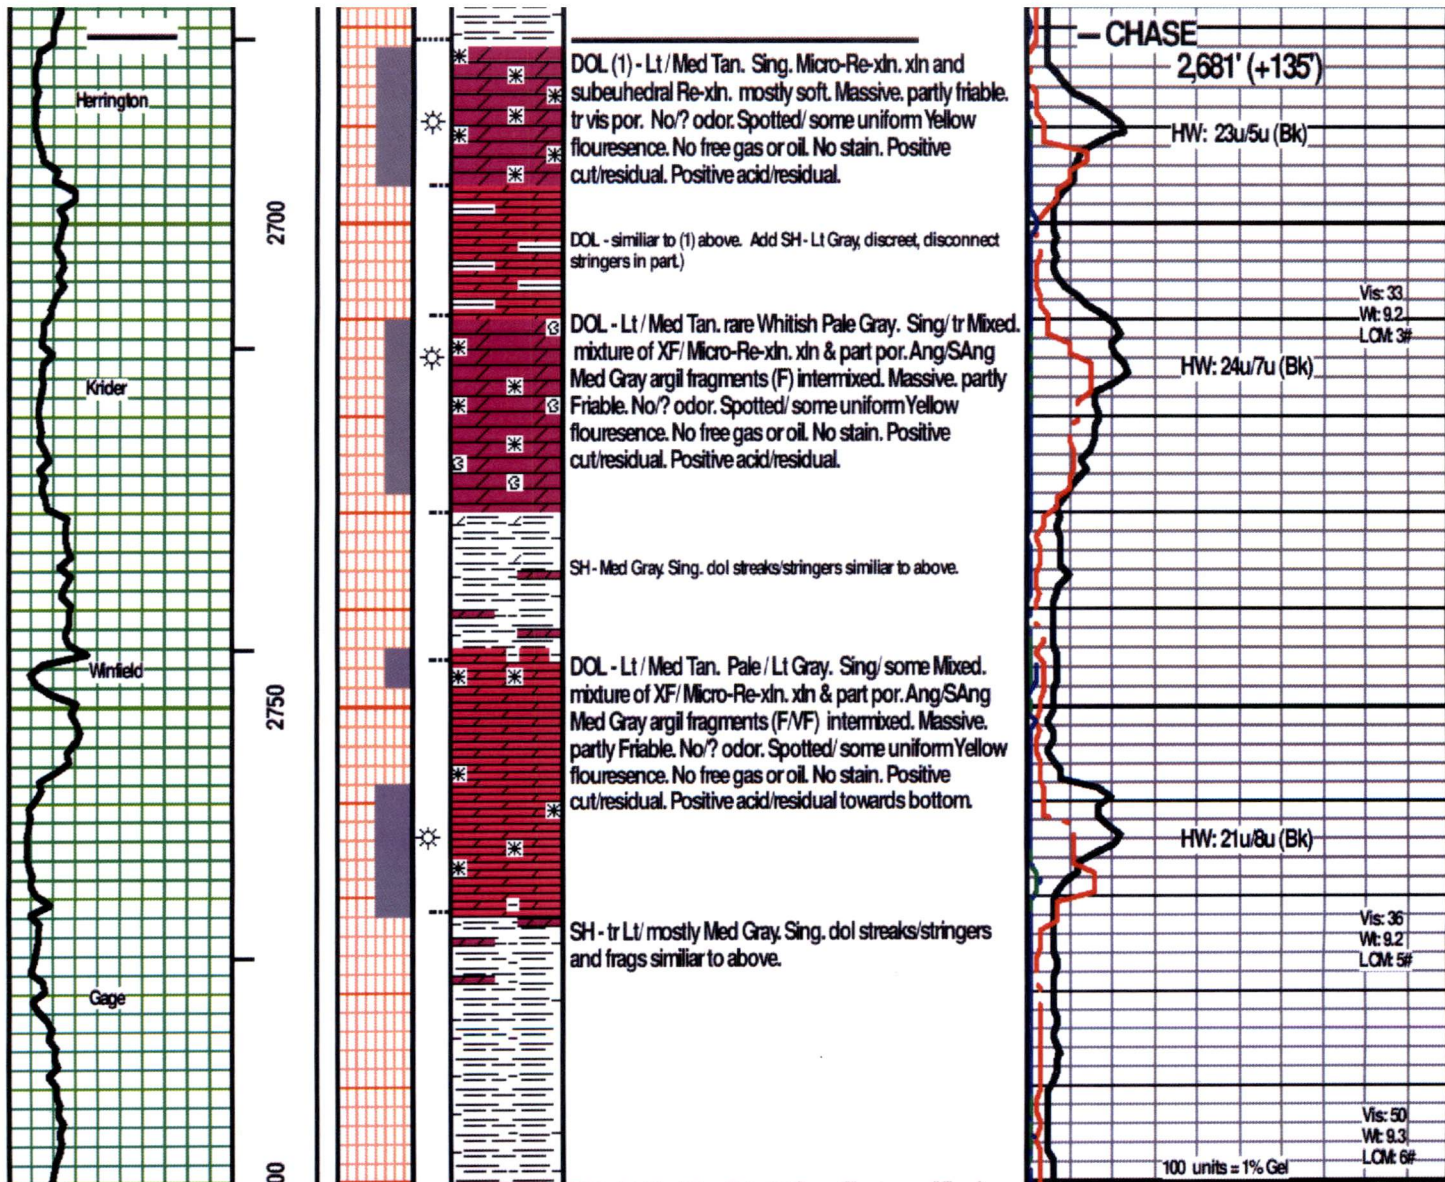 Herrington
Krider
Winfield
Gage
2700
2750
00
DOL (1) - Lt / Med Tan. Sing. Micro-Re-xln. xln and
subeuhedral Re-xln. mostly soft. Massive. partly friable.
tr vis por. No/? odor. Spotted/ some uniform Yellow
flouresence. No free gas or oil. No stain. Positive
cut/residual. Positive acid/residual.
DOL - similiar to (1) above. Add SH - Lt Gray, discreet, disconnect
stringers in part.)
DOL - Lt / Med Tan. rare Whitish Pale Gray. Sing/ tr Mixed.
mixture of XF/ Micro-Re-xln. xln & part por. Ang/SAng
Med Gray argil fragments (F) intermixed. Massive. partly
Friable. No/? odor. Spotted/ some uniform Yellow
flouresence. No free gas or oil. No stain. Positive
cut/residual. Positive acid/residual.
SH - Med Gray. Sing. dol streaks/stringers similiar to above.
DOL - Lt / Med Tan. Pale / Lt Gray. Sing/ some Mixed.
mixture of XF/ Micro-Re-xln. xln & part por. Ang/SAng
Med Gray argil fragments (F/VF) intermixed. Massive.
partly Friable. No/? odor. Spotted/ some uniform Yellow
flouresence. No free gas or oil. No stain. Positive
cut/residual. Positive acid/residual towards bottom.
SH - tr Lt/ mostly Med Gray. Sing. dol streaks/stringers
and frags similiar to above.
— CHASE
2,681' (+135')
HW: 23u/5u (Bk)
Vis: 33
Wt: 9.2
LCM: 3#
HW: 24u/7u (Bk)
HW: 21u/8u (Bk)
Vis: 36
Wt: 9.2
LCM: 5#
Vis: 50
Wt: 9.3
LCM: 6#
100 units = 1% Gel